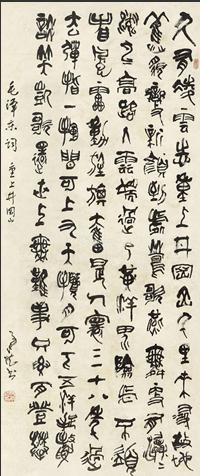 久有凌雲志重上井岡山千里来尋故地
舊貌變新顔到處鶯歌燕舞更有潺潺
流水高路入雲端過了黄洋界險處不須
看風雷動旌旗奮是人寰三十八年過
去彈指一揮間可上九天攬月可下五洋捉鱉
談笑凱歌還世上無難事只要肯登攀
毛澤東詞重上井岡山